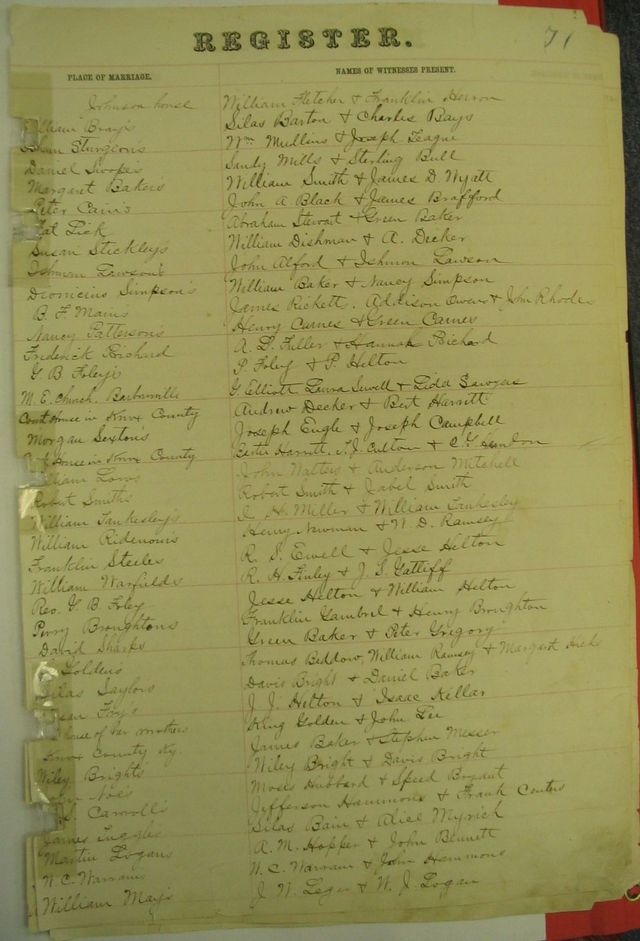 REGISTER.
71
PLACE OF MARRIAGE.
NAMES OF WITNESSES PRESENT.
Johnson house
William Fletcher & Franklin Herron
William Bray's
Silas Barton & Charles Bays
Sturgions
Wm Mullens & Joseph League
Daniel Swopes
Sandy Mills & Sterling Bull
Margart Baker's
William Smith & James D. Wyatt
Peter Cain's
John A Black & James Brafford
Pat Lick
Abraham Stewart & Green Baker
Susan Stickleys
William Dishman & A. Decker
Ishmon Lawson's
John Alford & Ishmon Lawson
Dionicius Simpson's
William Baker & Nancy Simpson
B. F. Mains
James Ricketts, Addison Owens & John Rhodes
Nancy Patterson's
Henry Carnes & Green Carnes
Frederick Richard
A. L. Fuller & Hannah Richard
G. B. Foley's
P. Foley & P. Helton
M. E. Church, Barbourville
G. Elliott, Laura Sewell & Lidd Sawyers
Court House in Knox County
Andrew Decker & Bert Harritt
Morgan Sexton's
Joseph Engle & Joseph Campbell
House in Knox County
Ester Harritt, T. J. Culton & C. G. Herndon
William Laws
John Walters & Anderson Mitchell
Robert Smiths
Robert Smith & Jabel Smith
William Tankesley's
H. Miller & William Tankesley
William Ridenours
Henry Newman & W. D. Ramsey
Franklin Steeles
R. S. Ewell & Jesse Helton
William Warfields
R. H. Finley & J. S. Gatliff
Rev. G. B. Foley
Jesse Helton & William Helton
Perry Broughtons
Franklin Gambrel & Henry Broughton
David Sharps
Green Baker & Peter Gregory
Goldens
Thomas Beddow, William Ramsey & Margart Hicks
Silas Saylors
Davis Bright & Daniel Baker
Foxy's
J. J. Helton & Isaac Killar
house of her mothers
King Golden & John Lee
Knox County Ky.
James Baker & Stephen Messer
Wiley Brights
Wiley Bright & Davis Bright
Noe's
Moses Hubbard & Speed Bryant
Carroll's
Jefferson Hammons & Frank Centers
James Ingles
Silas Bain & Alice Myrich
Martin Logans
A. M. Hopper & John Bennett
W. C. Warrans
W. C. Warram & John Hammons
William Mays
J. W. Leger & W. J. Logan